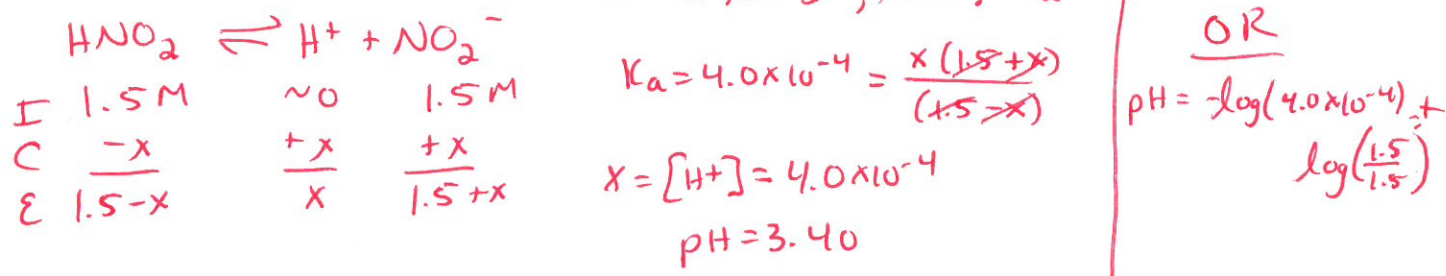 HNO₂ ⇌ H⁺ + NO₂⁻
I 1.5M ~0 1.5M
C -x +x +x
E 1.5-x x 1.5+x
Ka = 4.0x10⁻⁴ = x(1.5+x) / (1.5-x)
x = [H+] = 4.0x10⁻⁴
pH = 3.40
OR
pH = -log(4.0x10⁻⁴) +
log(1.5/1.5)